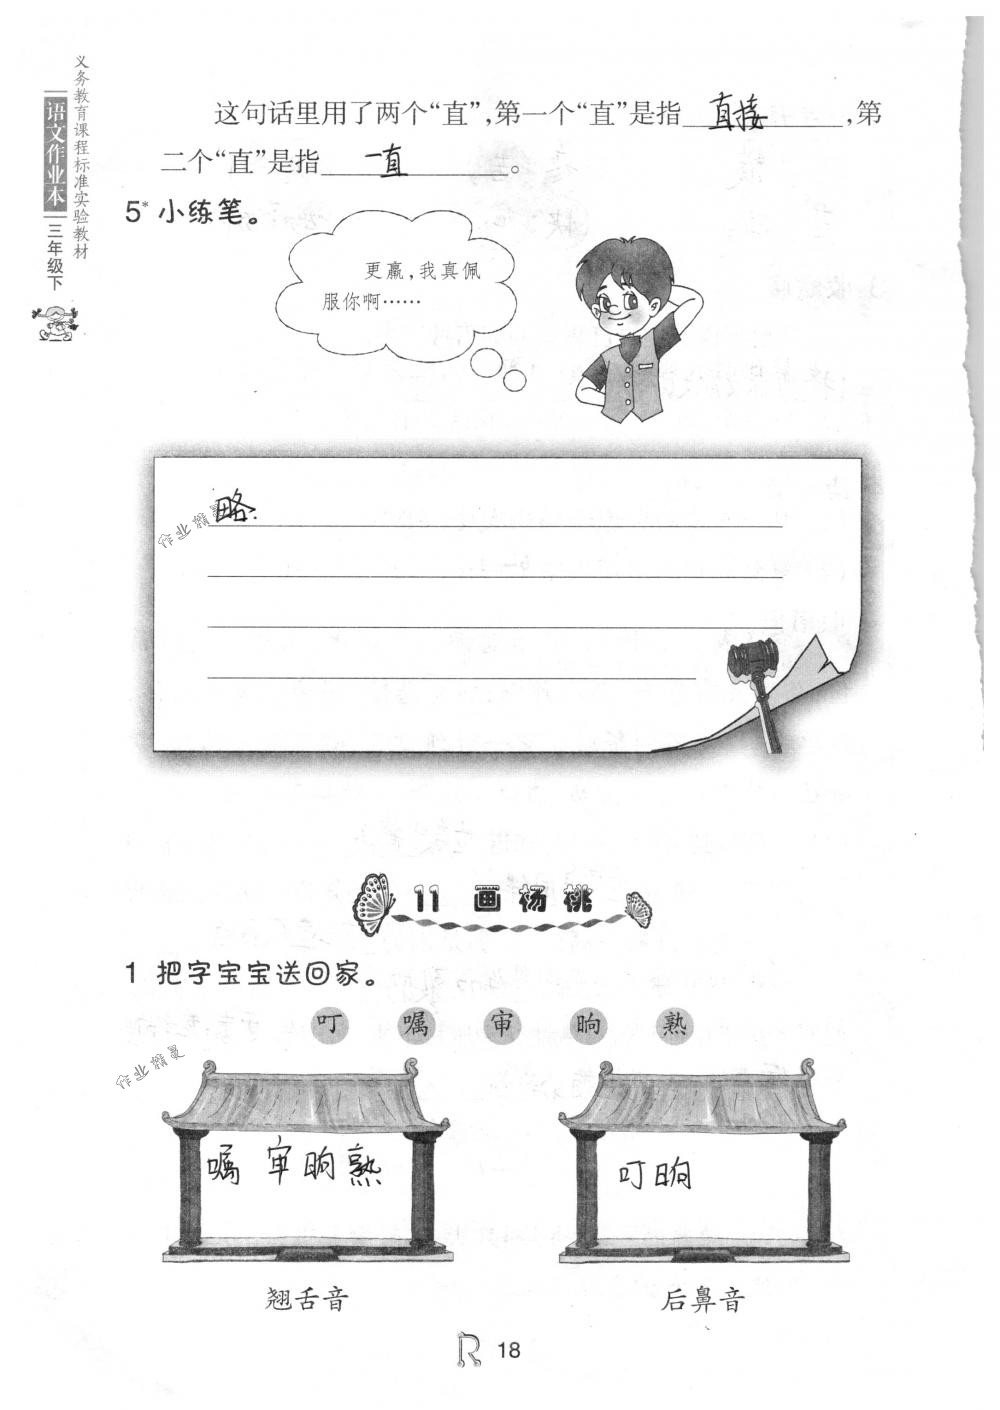 义务教育课程标准实验教材
语文作业本
三年级下
这句话里用了两个“直”,第一个“直”是指 直接 ,第
二个“直”是指 一直 。
5* 小练笔。
更羸,我真佩
服你啊……
略.
作业精灵
11 画杨桃
1 把字宝宝送回家。
叮 嘱 审 晌 熟
作业精灵
嘱 审 晌 熟
叮 晌
翘舌音
后鼻音
R 18